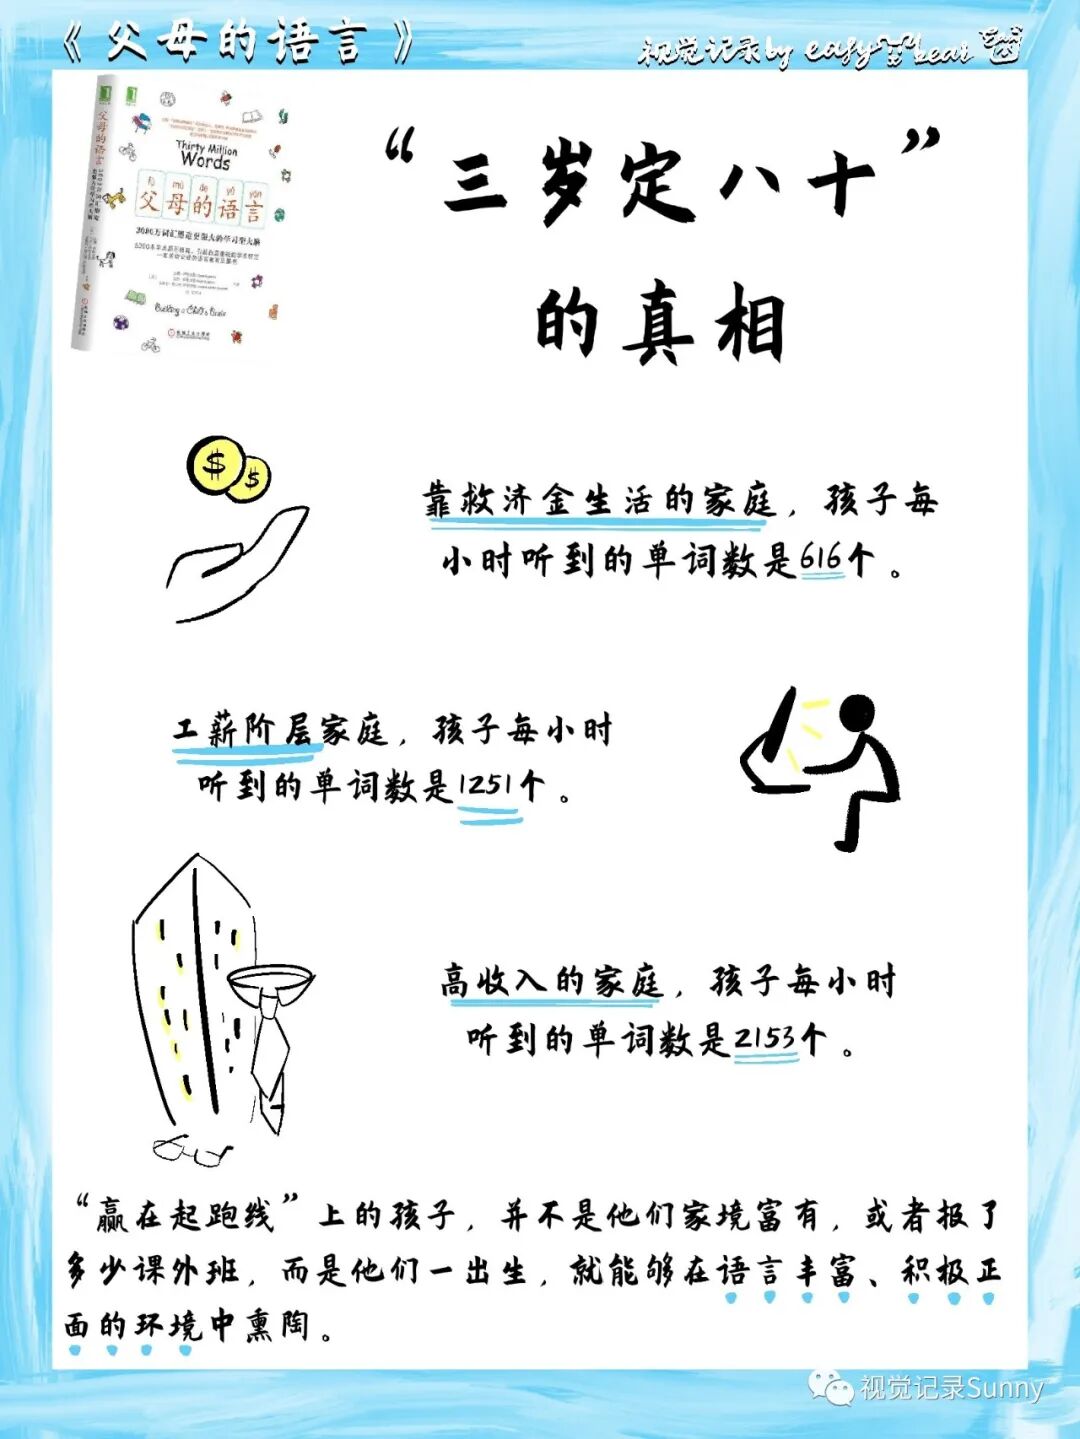 《父母的语言》
视觉记录by easy bear
Thirty Million
Words
fù mǔ de yǔ yán
父母的语言
3000万词汇塑造更强大的学习型大脑
Building a Child's Brain
“三岁定八十”
的真相
靠救济金生活的家庭，孩子每
小时听到的单词数是616个。
工薪阶层家庭，孩子每小时
听到的单词数是1251个。
高收入的家庭，孩子每小时
听到的单词数是2153个。
“赢在起跑线”上的孩子，并不是他们家境富有，或者报了
多少课外班，而是他们一出生，就能够在语言丰富、积极正
面的环境中熏陶。
视觉记录Sunny